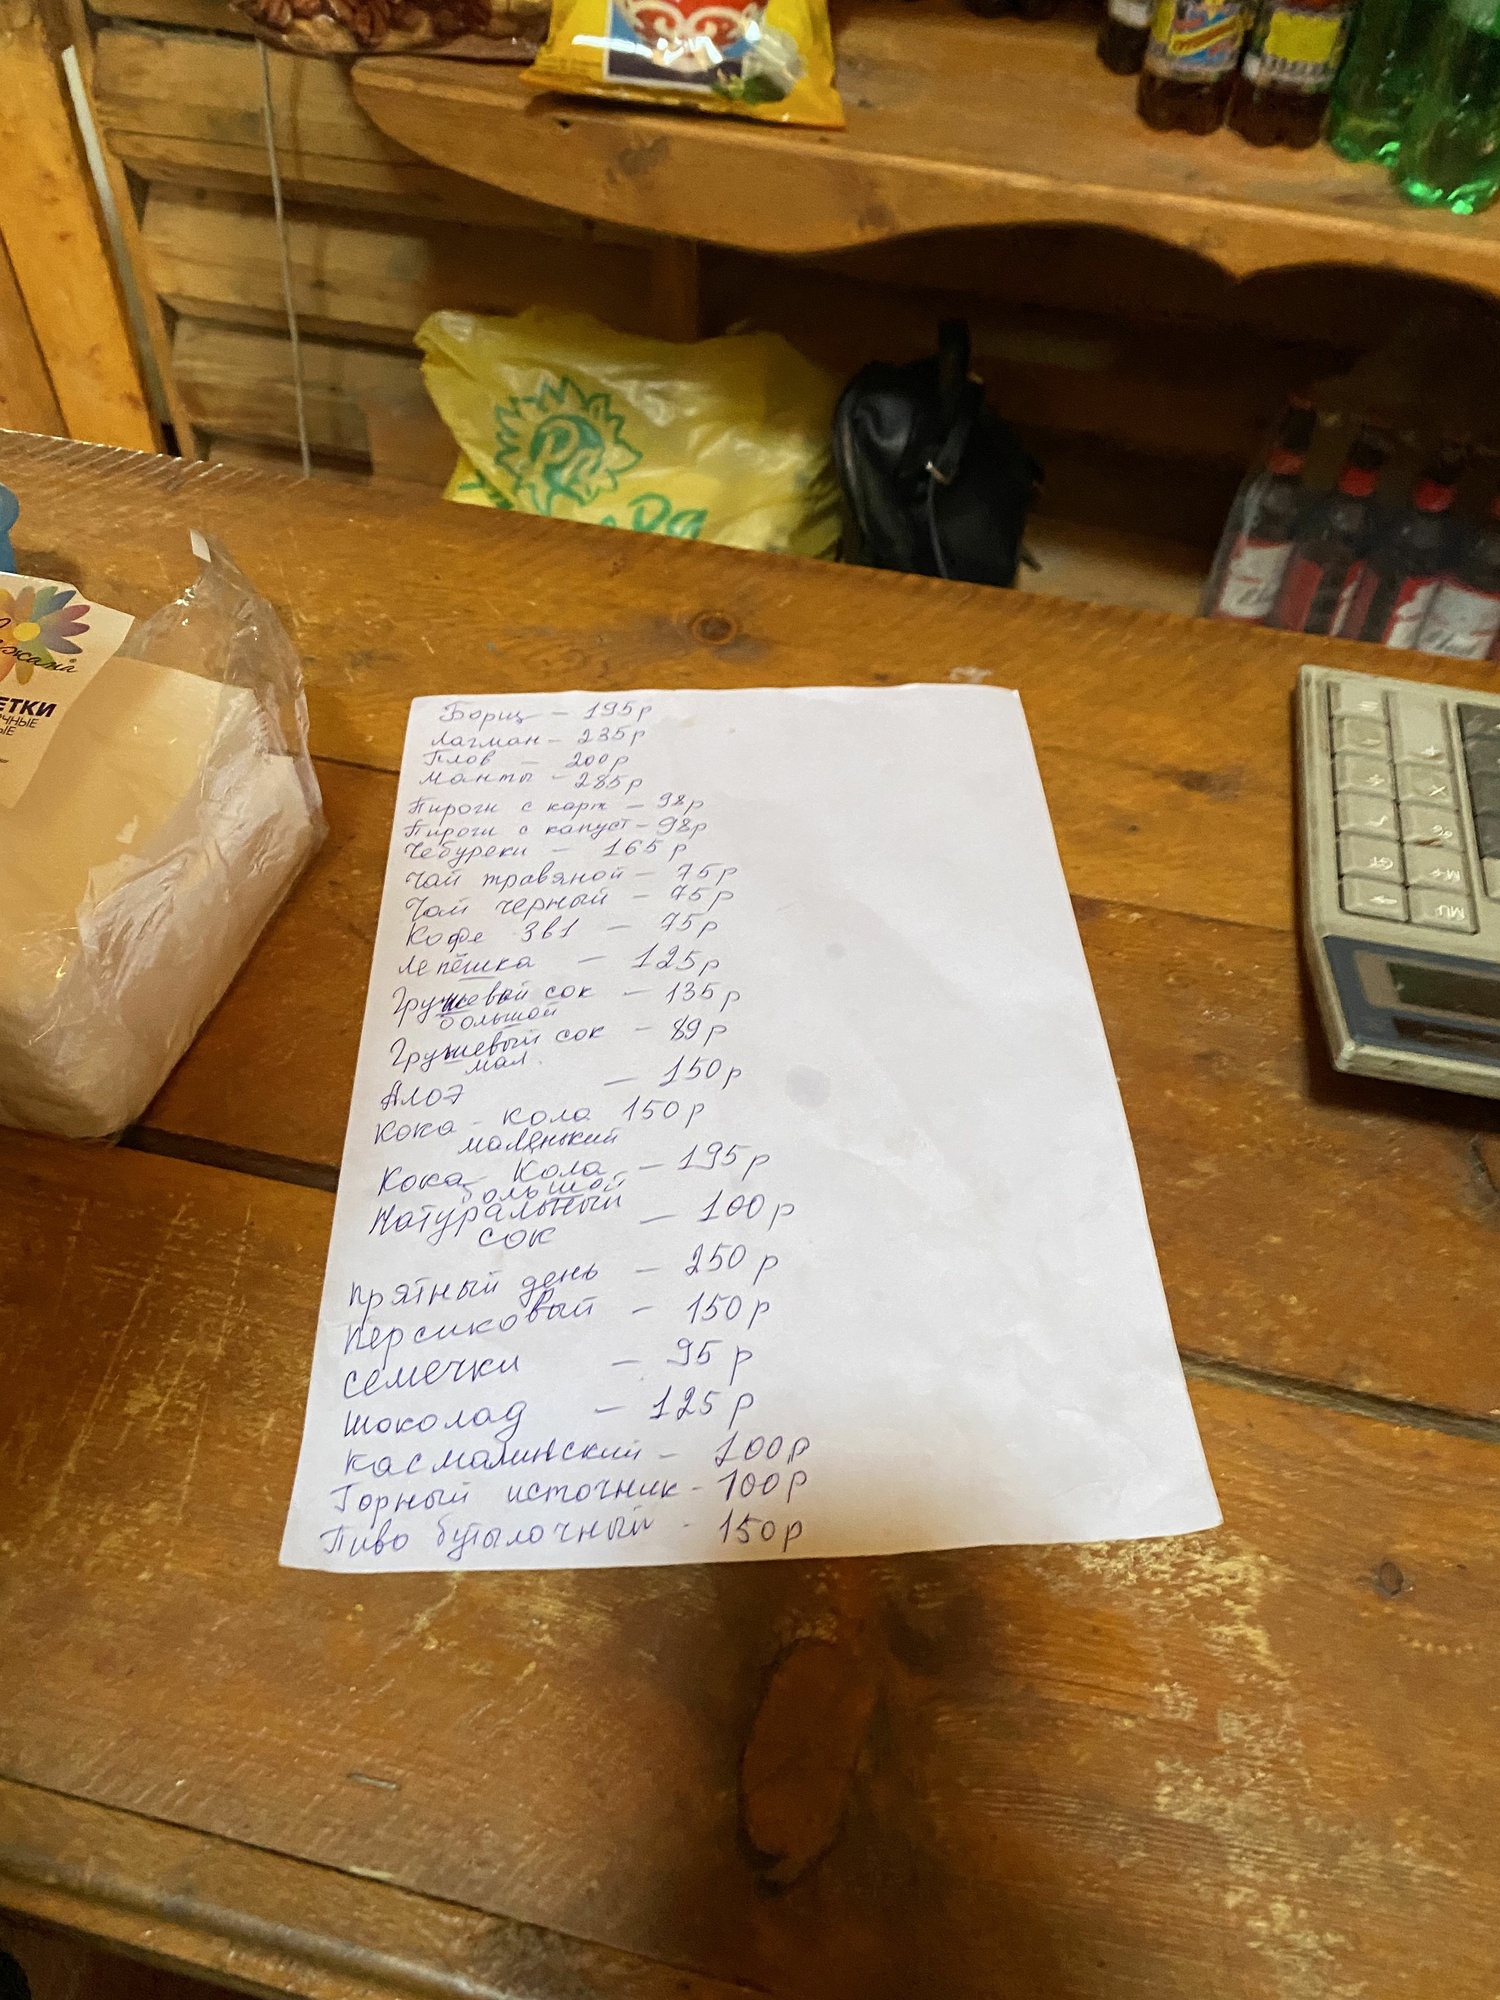 Борщ - 195р
Лагман - 235р
Плов - 200р
Манты - 285р
Пироги с карт - 98р
Пироги с капуст - 98р
Чебуреки - 165р
Чай травяной - 75р
Чай черный - 75р
Кофе 3в1 - 75р
Лепёшка - 125р
Грушевый сок - 135р
большой
Грушевый сок - 89р
мал.
Алоэ - 150р
Кока - кола 150р
маленький
Кока - Кола - 195р
большой
Натуральный - 100р
сок
Прятный день - 250р
Персиковый - 150р
Семечки - 95р
Шоколад - 125р
Касмалинский - 100р
Горный источник - 100р
Пиво бутылочный - 150р
ЕТКИ
ЧНЫЕ
ЫЕ
GT
M+
MU